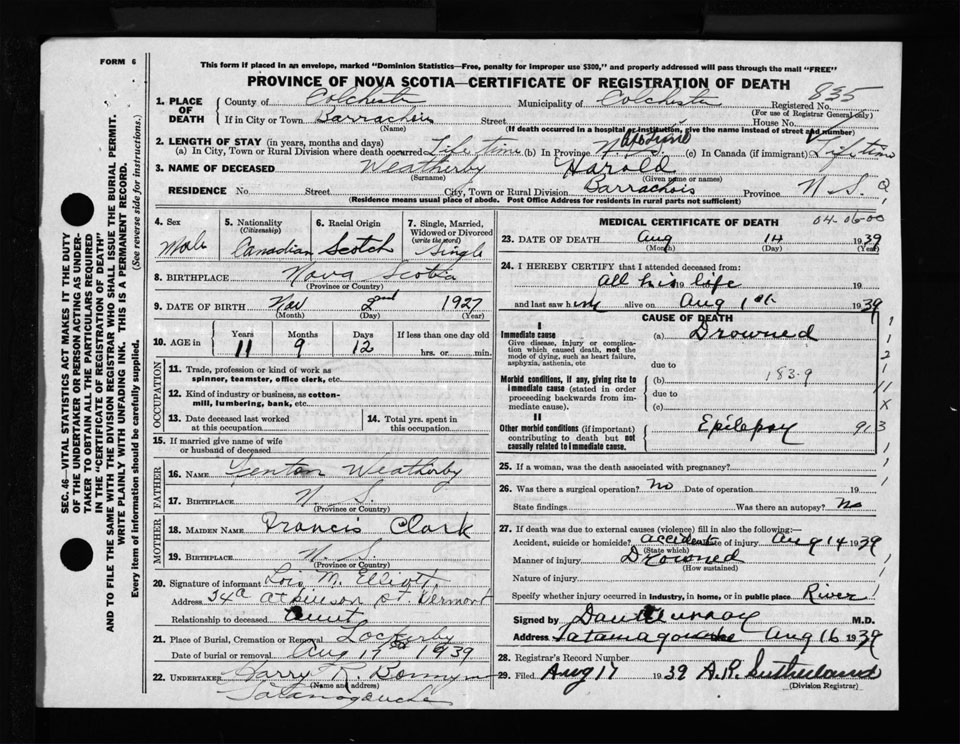 FORM 6
This form if placed in an envelope, marked "Dominion Statistics—Free, penalty for improper use $300," and properly addressed will pass through the mail "FREE"
PROVINCE OF NOVA SCOTIA—CERTIFICATE OF REGISTRATION OF DEATH
835
1. PLACE OF DEATH County of Colchester Municipality of Colchester Registered No.
(For use of Registrar General only)
If in City or Town Barrachois Street House No.
(Name) (If death occurred in a hospital or institution, give the name instead of street and number)
2. LENGTH OF STAY (in years, months and days)
(a) In City, Town or Rural Division where death occurred Life time (b) In Province (c) In Canada (if immigrant) Life time
3. NAME OF DECEASED Weatherby Harold
(Surname) (Given name or names)
RESIDENCE No. Street City, Town or Rural Division Barrachois Province N. S.
(Residence means usual place of abode. Post Office Address for residents in rural parts not sufficient)
SEC. 46—VITAL STATISTICS ACT MAKES IT THE DUTY
OF THE UNDERTAKER OR PERSON ACTING AS UNDER-
TAKER TO OBTAIN ALL THE PARTICULARS REQUIRED
IN THE "CERTIFICATE OF REGISTRATION OF DEATH"
AND TO FILE THE SAME WITH THE DIVISION REGISTRAR WHO SHALL ISSUE THE BURIAL PERMIT.
WRITE PLAINLY WITH UNFADING INK. THIS IS A PERMANENT RECORD.
Every item of information should be carefully supplied. (See reverse side for instructions.)
4. Sex 5. Nationality 6. Racial Origin 7. Single, Married,
(Citizenship) Widowed or Divorced
(write the word)
Male Canadian Scotch Single
8. BIRTHPLACE Nova Scotia
(Province or Country)
9. DATE OF BIRTH Nov 2nd 1927
(Month) (Day) (Year)
10. AGE in Years Months Days If less than one day old
11 9 12 hrs. or min.
OCCUPATION
11. Trade, profession or kind of work as
spinner, teamster, office clerk, etc.
12. Kind of industry or business, as cotton-
mill, lumbering, bank, etc.
13. Date deceased last worked 14. Total yrs. spent in
at this occupation this occupation.
15. If married give name of wife
or husband of deceased
FATHER
16. NAME Fenton Weatherby
17. BIRTHPLACE N. S.
(Province or Country)
MOTHER
18. MAIDEN NAME Francis Clark
19. BIRTHPLACE N. S.
(Province or Country)
20. Signature of informant Lois M. Elliott
Address 34a Atkinson St. Vermont
Relationship to deceased Aunt
21. Place of Burial, Cremation or Removal Lockerby
Date of burial or removal Aug 17 1939
22. UNDERTAKER Harry R. Bonnyman
(Name and address)
Tatamagouche
MEDICAL CERTIFICATE OF DEATH
04-06-00
23. DATE OF DEATH Aug 14 1939
(Month) (Day) (Year)
24. I HEREBY CERTIFY that I attended deceased from:
All his 19 life 19
and last saw him alive on Aug 1st 1939
CAUSE OF DEATH
I
Immediate cause (a) Drowned
Give disease, injury or complica-
tion which caused death, not the
mode of dying, such as heart failure,
asphyxia, asthenia, etc due to
Morbid conditions, if any, giving rise to (b) 183-9
immediate cause (stated in order due to
proceeding backwards from im-
mediate cause). (c)
II
Other morbid conditions (if important) Epilepsy
contributing to death but not
causally related to immediate cause.
25. If a woman, was the death associated with pregnancy?
26. Was there a surgical operation? No Date of operation 19
State findings Was there an autopsy? No
27. If death was due to external causes (violence) fill in also the following:—
Accident, suicide or homicide? accident Date of injury Aug 14 1939
(State which)
Manner of injury Drowned
(How sustained)
Nature of injury
Specify whether injury occurred in industry, in home, or in public place River
Signed by M.D.
Address Tatamagouche Aug 16 1939
28. Registrar's Record Number
29. Filed Aug 17 1939 A.R. Sutherland
(Division Registrar)